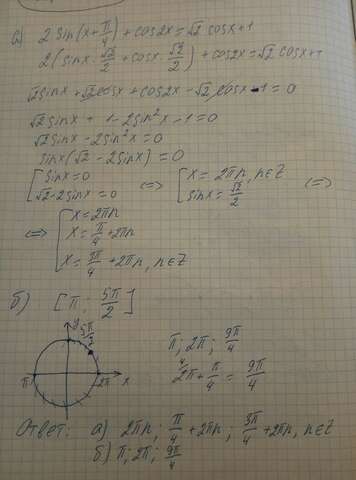 а) 2 sin(x + π/4) + cos2x = √2 cosx + 1
2(sinx · √2/2 + cosx · √2/2) + cos2x = √2 cosx + 1
√2 sinx + √2 cosx + cos2x - √2 cosx - 1 = 0
√2 sinx + 1 - 2sin²x - 1 = 0
√2 sinx - 2sin²x = 0
sinx(√2 - 2sinx) = 0
[ sinx = 0 ⇔ [ x = 2πn, n∈Z ⇔
√2 - 2sinx = 0 sinx = √2/2
⇔ [ x = 2πn
x = π/4 + 2πn
x = 3π/4 + 2πn, n∈Z
б) [π; 5π/2]
y 5π/2
π 2π x
π; 2π; 9π/4
2π + π/4 = 9π/4
Ответ: а) 2πn; π/4 + 2πn; 3π/4 + 2πn, n∈Z
б) π; 2π; 9π/4